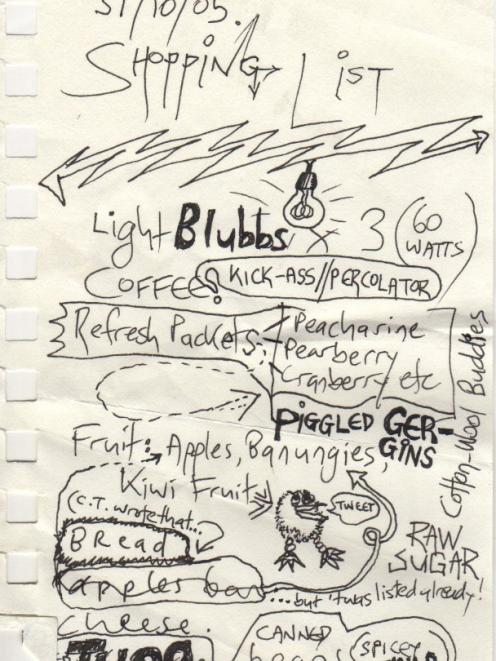 31/10/05.
SHOPPING LIST
Light Blubbs x 3 (60 WATTS)
COFFEE? KICK-ASS//PERCOLATOR
Refresh Packets: Peacharine
Pearberry
Cranberry etc
PIGGLED GER-
GINS
Cotton-Wool Buddies
Fruit: Apples, Banungies,
Kiwi Fruit
TWEET
(C.T. wrote that...
BRead
RAW
SUGAR
apples
...but 'twas listed already!
cheese.
CANNED
SPICEY